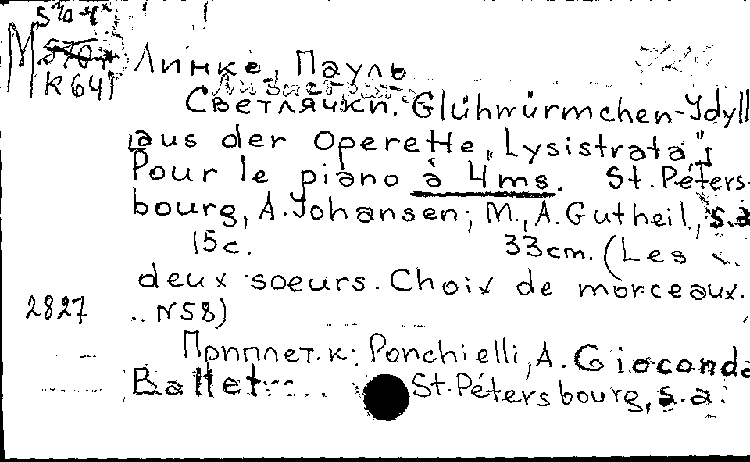 М
К 641
Линке, Пауль
Светлячки. Glühwürmchen-Idyll
[aus der Operette „Lysistrata"]
Pour le piano à 4 ms. St. Péters-
bourg, A. Johansen; M., A. Gutheil, s.a
15 c. 33 cm. (Les
deux soeurs. Choix de morceaux.
2827 .. N58)
Приплет. к: Ponchielli, A. Gioconda
Ballet... St. Pétersbourg, s.a.